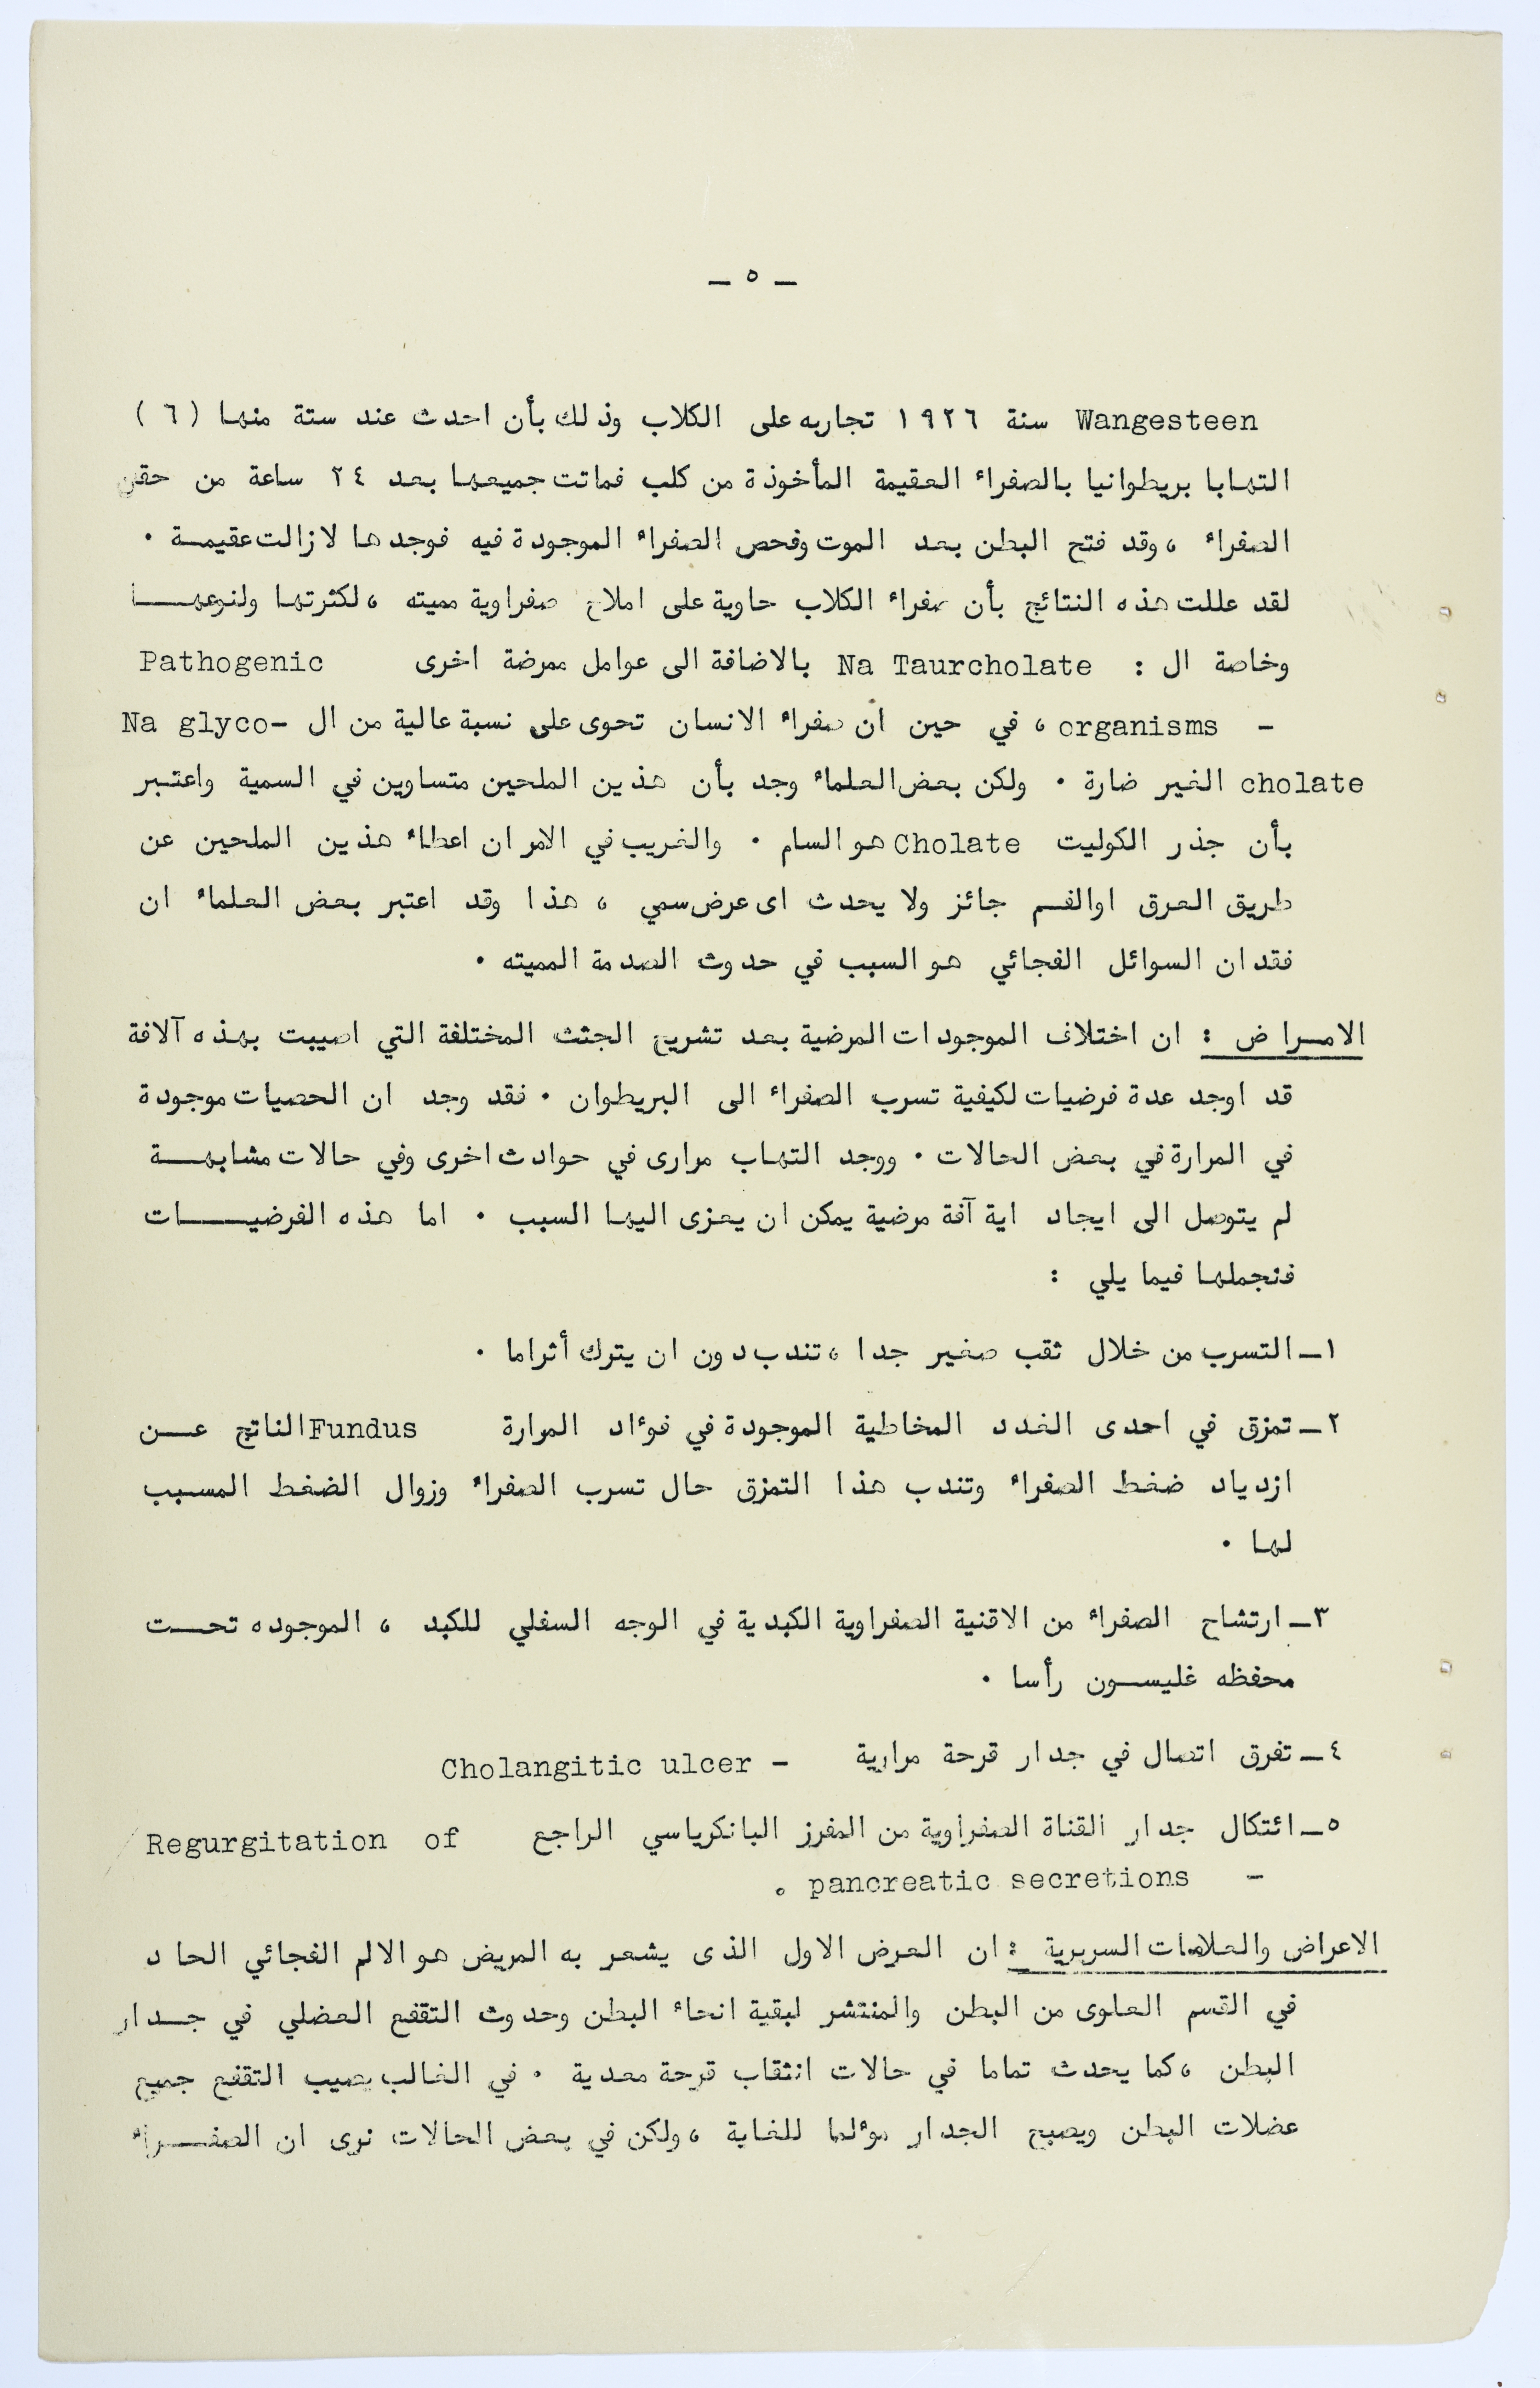 – ٥ –
Wangesteen سنة ١٩٢٦ تجاربه على الكلاب وذلك بأن احدث عند ستة منها (٦)
التهابا بريطوانيا بالصفراء العقيمة المأخوذة من كلب فماتت جميعها بعد ٢٤ ساعة من حقن
الصفراء ، وقد فتح البطن بعد الموت وفحص الصفراء الموجودة فيه فوجدها لازالت عقيمة .
لقد عللت هذه النتائج بأن صفراء الكلاب حاوية على املاح صفراوية مميته ، لكثرتها ولنوعها
وخاصة ال : Na Taurcholate بالاضافة الى عوامل ممرضة اخرى Pathogenic
– organisms ، في حين ان صفراء الانسان تحوى على نسبة عالية من ال Na glyco-
cholate الغير ضارة . ولكن بعض العلماء وجد بأن هذين الملحين متساوين في السمية واعتبر
بأن جذر الكوليت Cholate هو السام . والغريب في الامر ان اعطاء هذين الملحين عن
طريق العرق اوالفم جائز ولا يحدث اى عرض سمي ، هذا وقد اعتبر بعض العلماء ان
فقدان السوائل الفجائي هو السبب في حدوث الصدمة المميته .
الامراض : ان اختلاف الموجودات المرضية بعد تشريح الجثث المختلفة التي اصيبت بهذه آلافة
قد اوجد عدة فرضيات لكيفية تسرب الصفراء الى البريطوان . فقد وجد ان الحصيات موجودة
في المرارة في بعض الحالات . ووجد التهاب مرارى في حوادث اخرى وفي حالات مشابهة
لم يتوصل الى ايجاد اية آفة مرضية يمكن ان يعزى اليها السبب . اما هذه الفرضيات
فنجملها فيما يلي :
١ـ التسرب من خلال ثقب صغير جدا ، تندب دون ان يترك أثراما .
٢ـ تمزق في احدى الغدد المخاطية الموجودة في فوٴاد المرارة Fundus الناتج عن
ازدياد ضغط الصفراء وتندب هذا التمزق حال تسرب الصفراء وزوال الضغط المسبب
لها .
٣ـ ارتشاح الصفراء من الاقنية الصفراوية الكبدية في الوجه السفلي للكبد ، الموجوده تحت
محفظه غليسون رأسا .
٤ـ تفرق اتصال في جدار قرحة مرارية – Cholangitic ulcer
٥ـ ائتكال جدار القناة الصفراوية من المفرز البانكرياسي الراجع Regurgitation of
– pancreatic secretions .
الاعراض والعلامات السريرية : ان العرض الاول الذى يشعر به المريض هو الالم الفجائي الحاد
في القسم العلوى من البطن والمنتشر لبقية انحاء البطن وحدوث التقفع العضلي في جدار
البطن ، كما يحدث تماما في حالات انثقاب قرحة معدية . في الغالب يصيب التقفع جميع
عضلات البطن ويصبح الجدار موٴلما للغاية ، ولكن في بعض الحالات نرى ان الصفراء